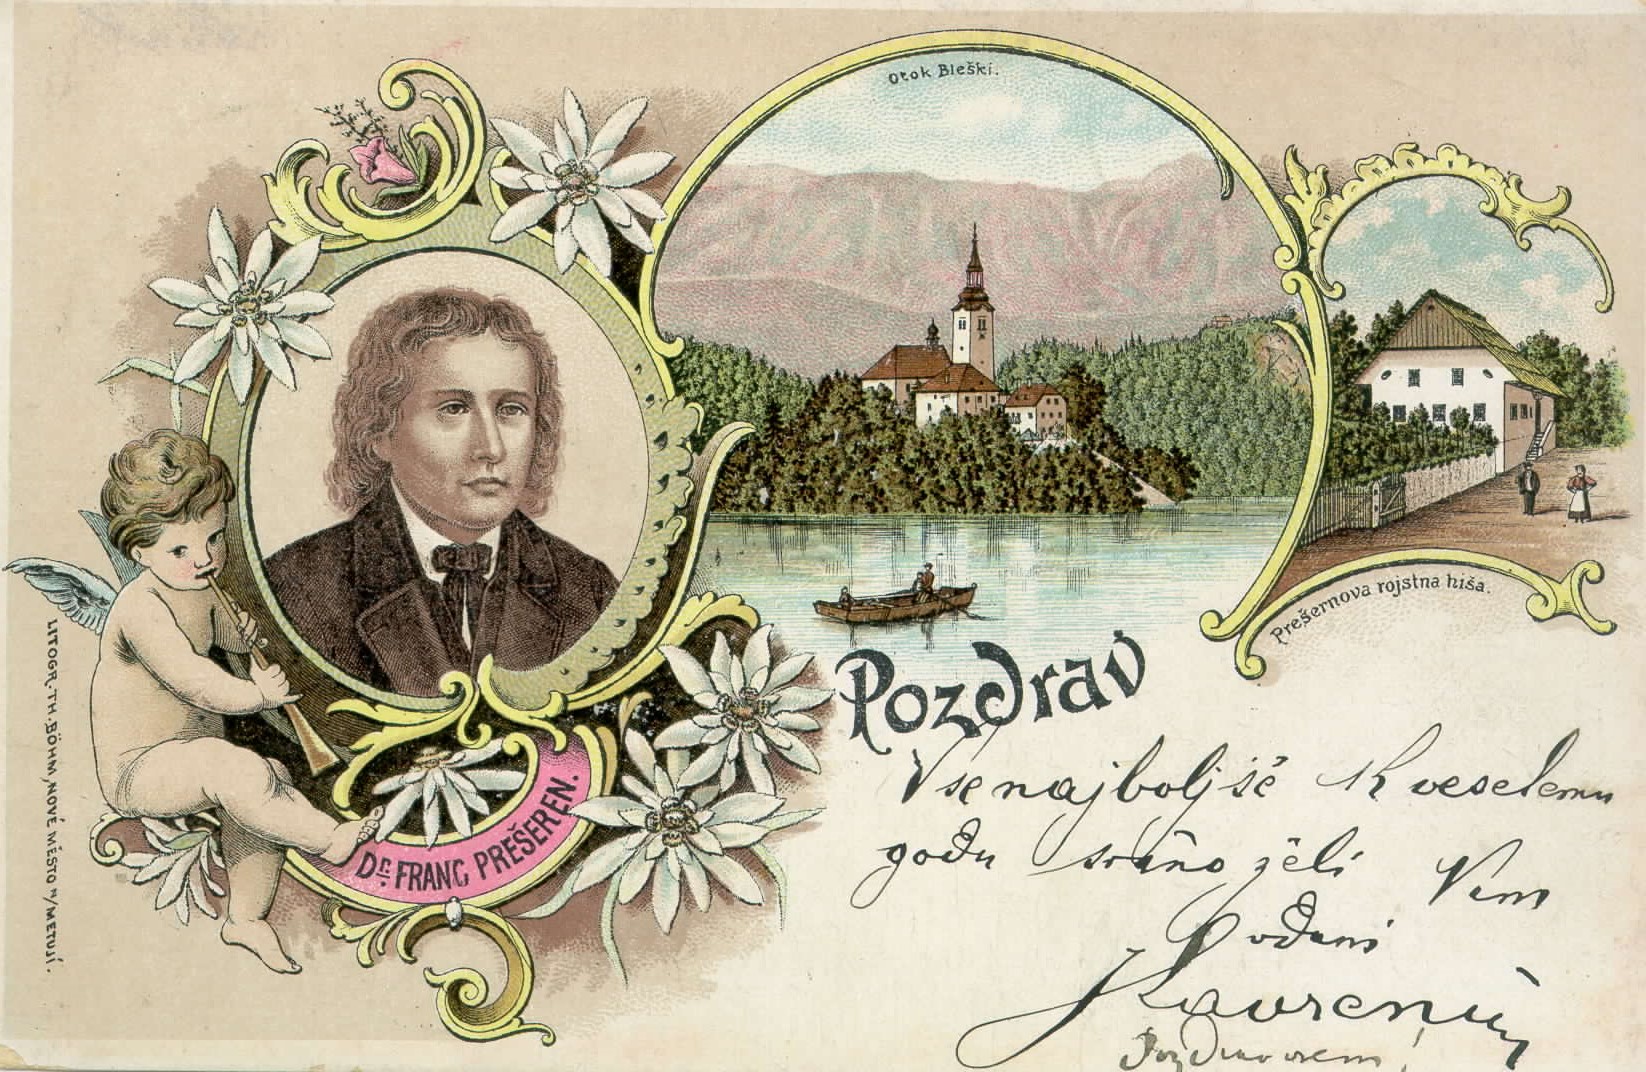 Otok Bleški.
Prešernova rojstna hiša.
Pozdrav
Dr. FRANC PREŠEREN.
LITOGR. TH. BÖHM, NOVÉ MĚSTO N/METUJÍ.
Vse najboljše k veselemu
godu srčno želi Vam
vdani